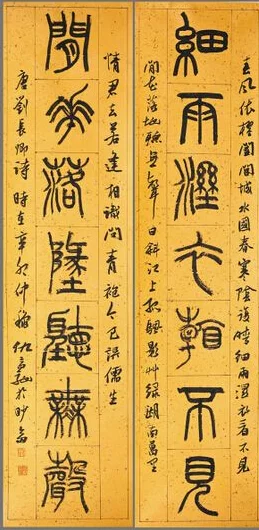 春風倚棹闔閭城水國春寒陰復晴細雨溼衣看不見
細雨溼衣看不見
閒花落地聽無聲日斜江上孤帆影草綠湖南萬里
情君去若逢相識問青袍今已誤儒生
閒花落墬聽無聲
唐劉長卿詩 時在辛卯仲穐 於